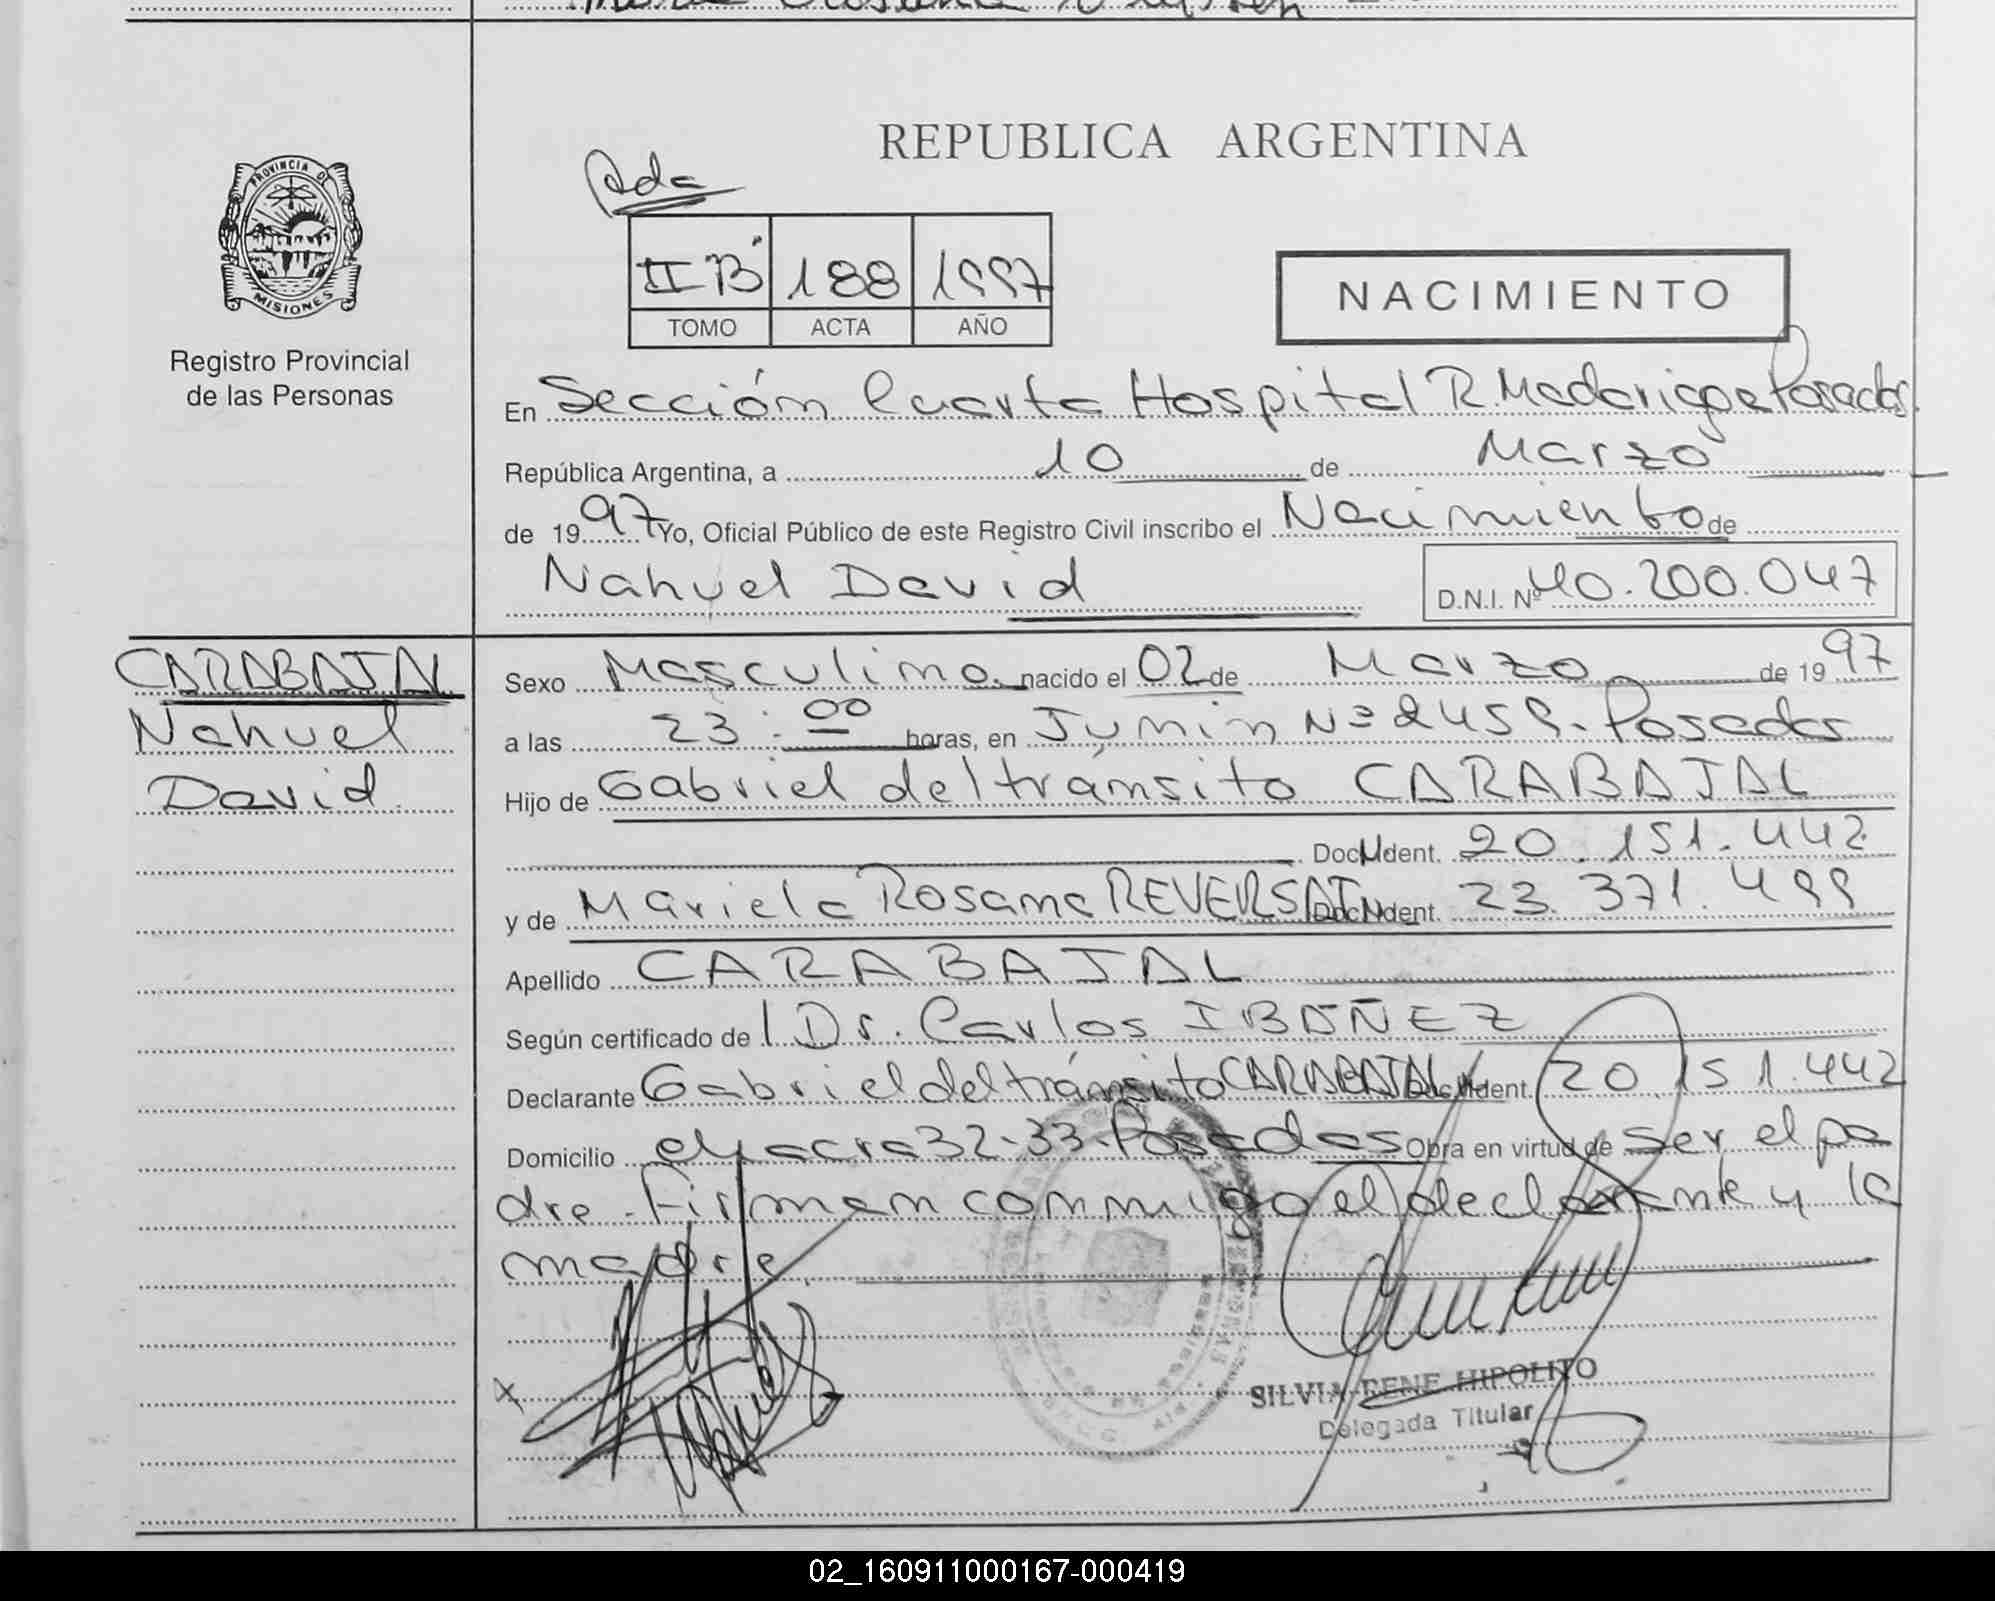 PROVINCIA DE
MISIONES
Registro Provincial
de las Personas
REPUBLICA ARGENTINA
II B 188 1997
TOMO ACTA AÑO
NACIMIENTO
En Sección Cuarta Hospital R Madariaga Posadas.
República Argentina, a 10 de Marzo
de 1997 Yo, Oficial Público de este Registro Civil inscribo el Nacimiento de
Nahuel David D.N.I. Nº 40.200.047
CARABAJAL
Nahuel
David
Sexo Masculino. nacido el 02 de Marzo de 1997
a las 23:00 horas, en Junin Nº 2459. Posadas
Hijo de Gabriel del tránsito CARABAJAL
Doc. Ident. 20.151.442
y de Mariela Rosana REVERSAT Doc. Ident. 23.371.499
Apellido CARABAJAL
Según certificado del Dr. Carlos IBAÑEZ
Declarante Gabriel del tránsito CARABAJAL Doc. Ident. 20.151.442
Domicilio chacra 32-33. Posadas Obra en virtud de ser el pa
dre. Firman conmigo el declarante y la
madre.
SILVIA RENE HIPOLITO
Delegada Titular
02_160911000167-000419